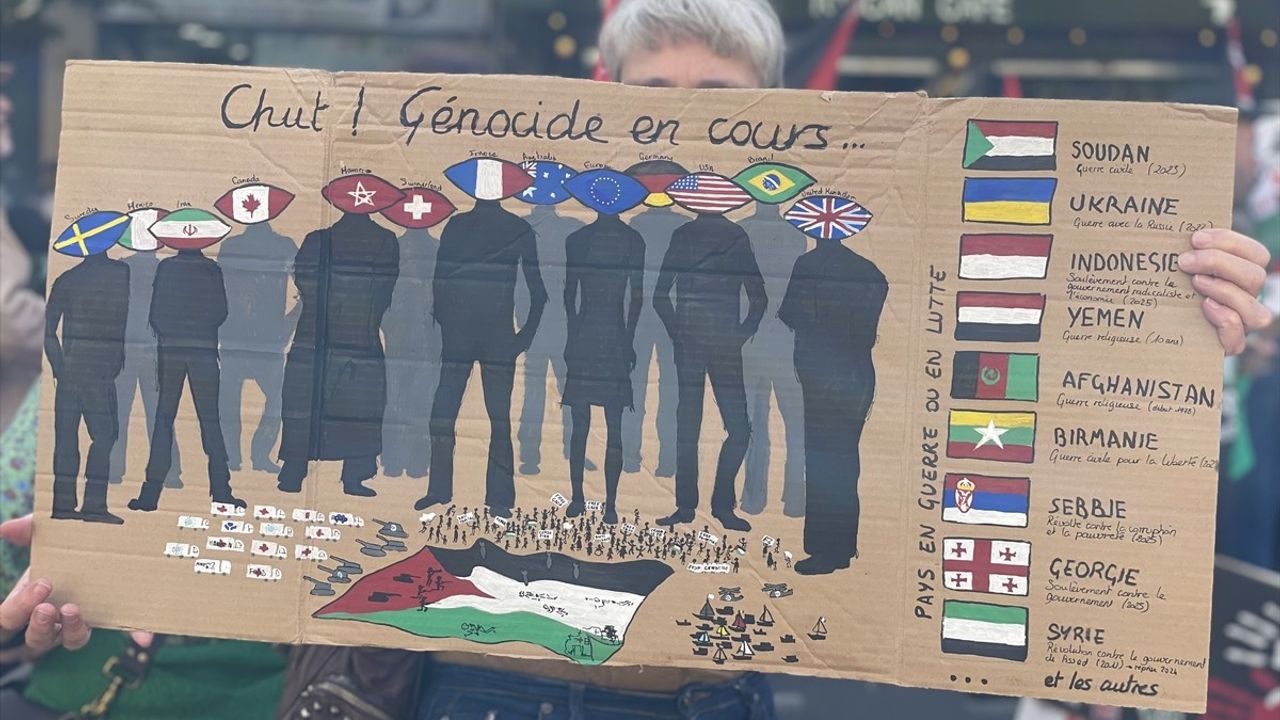 Chut ! Génocide en cours...
Canada
Iran
France
Germany
USA
Brazil
PAYS EN GUERRE OU EN LUTTE
SOUDAN
Guerre civile (2023)
UKRAINE
Guerre avec la Russie
INDONESIE
Soulèvement contre le
gouvernement radicaliste et
l'économie (2025)
YEMEN
Guerre religieuse (10 ans)
AFGHANISTAN
Guerre religieuse (début 1978)
BIRMANIE
Guerre civile pour la liberté
SERBIE
Révolte contre la corruption
et la pauvreté (2025)
GEORGIE
Soulèvement contre le
gouvernement (2025)
SYRIE
Révolution contre le gouvernement
de Assad (2011)
... et les autres